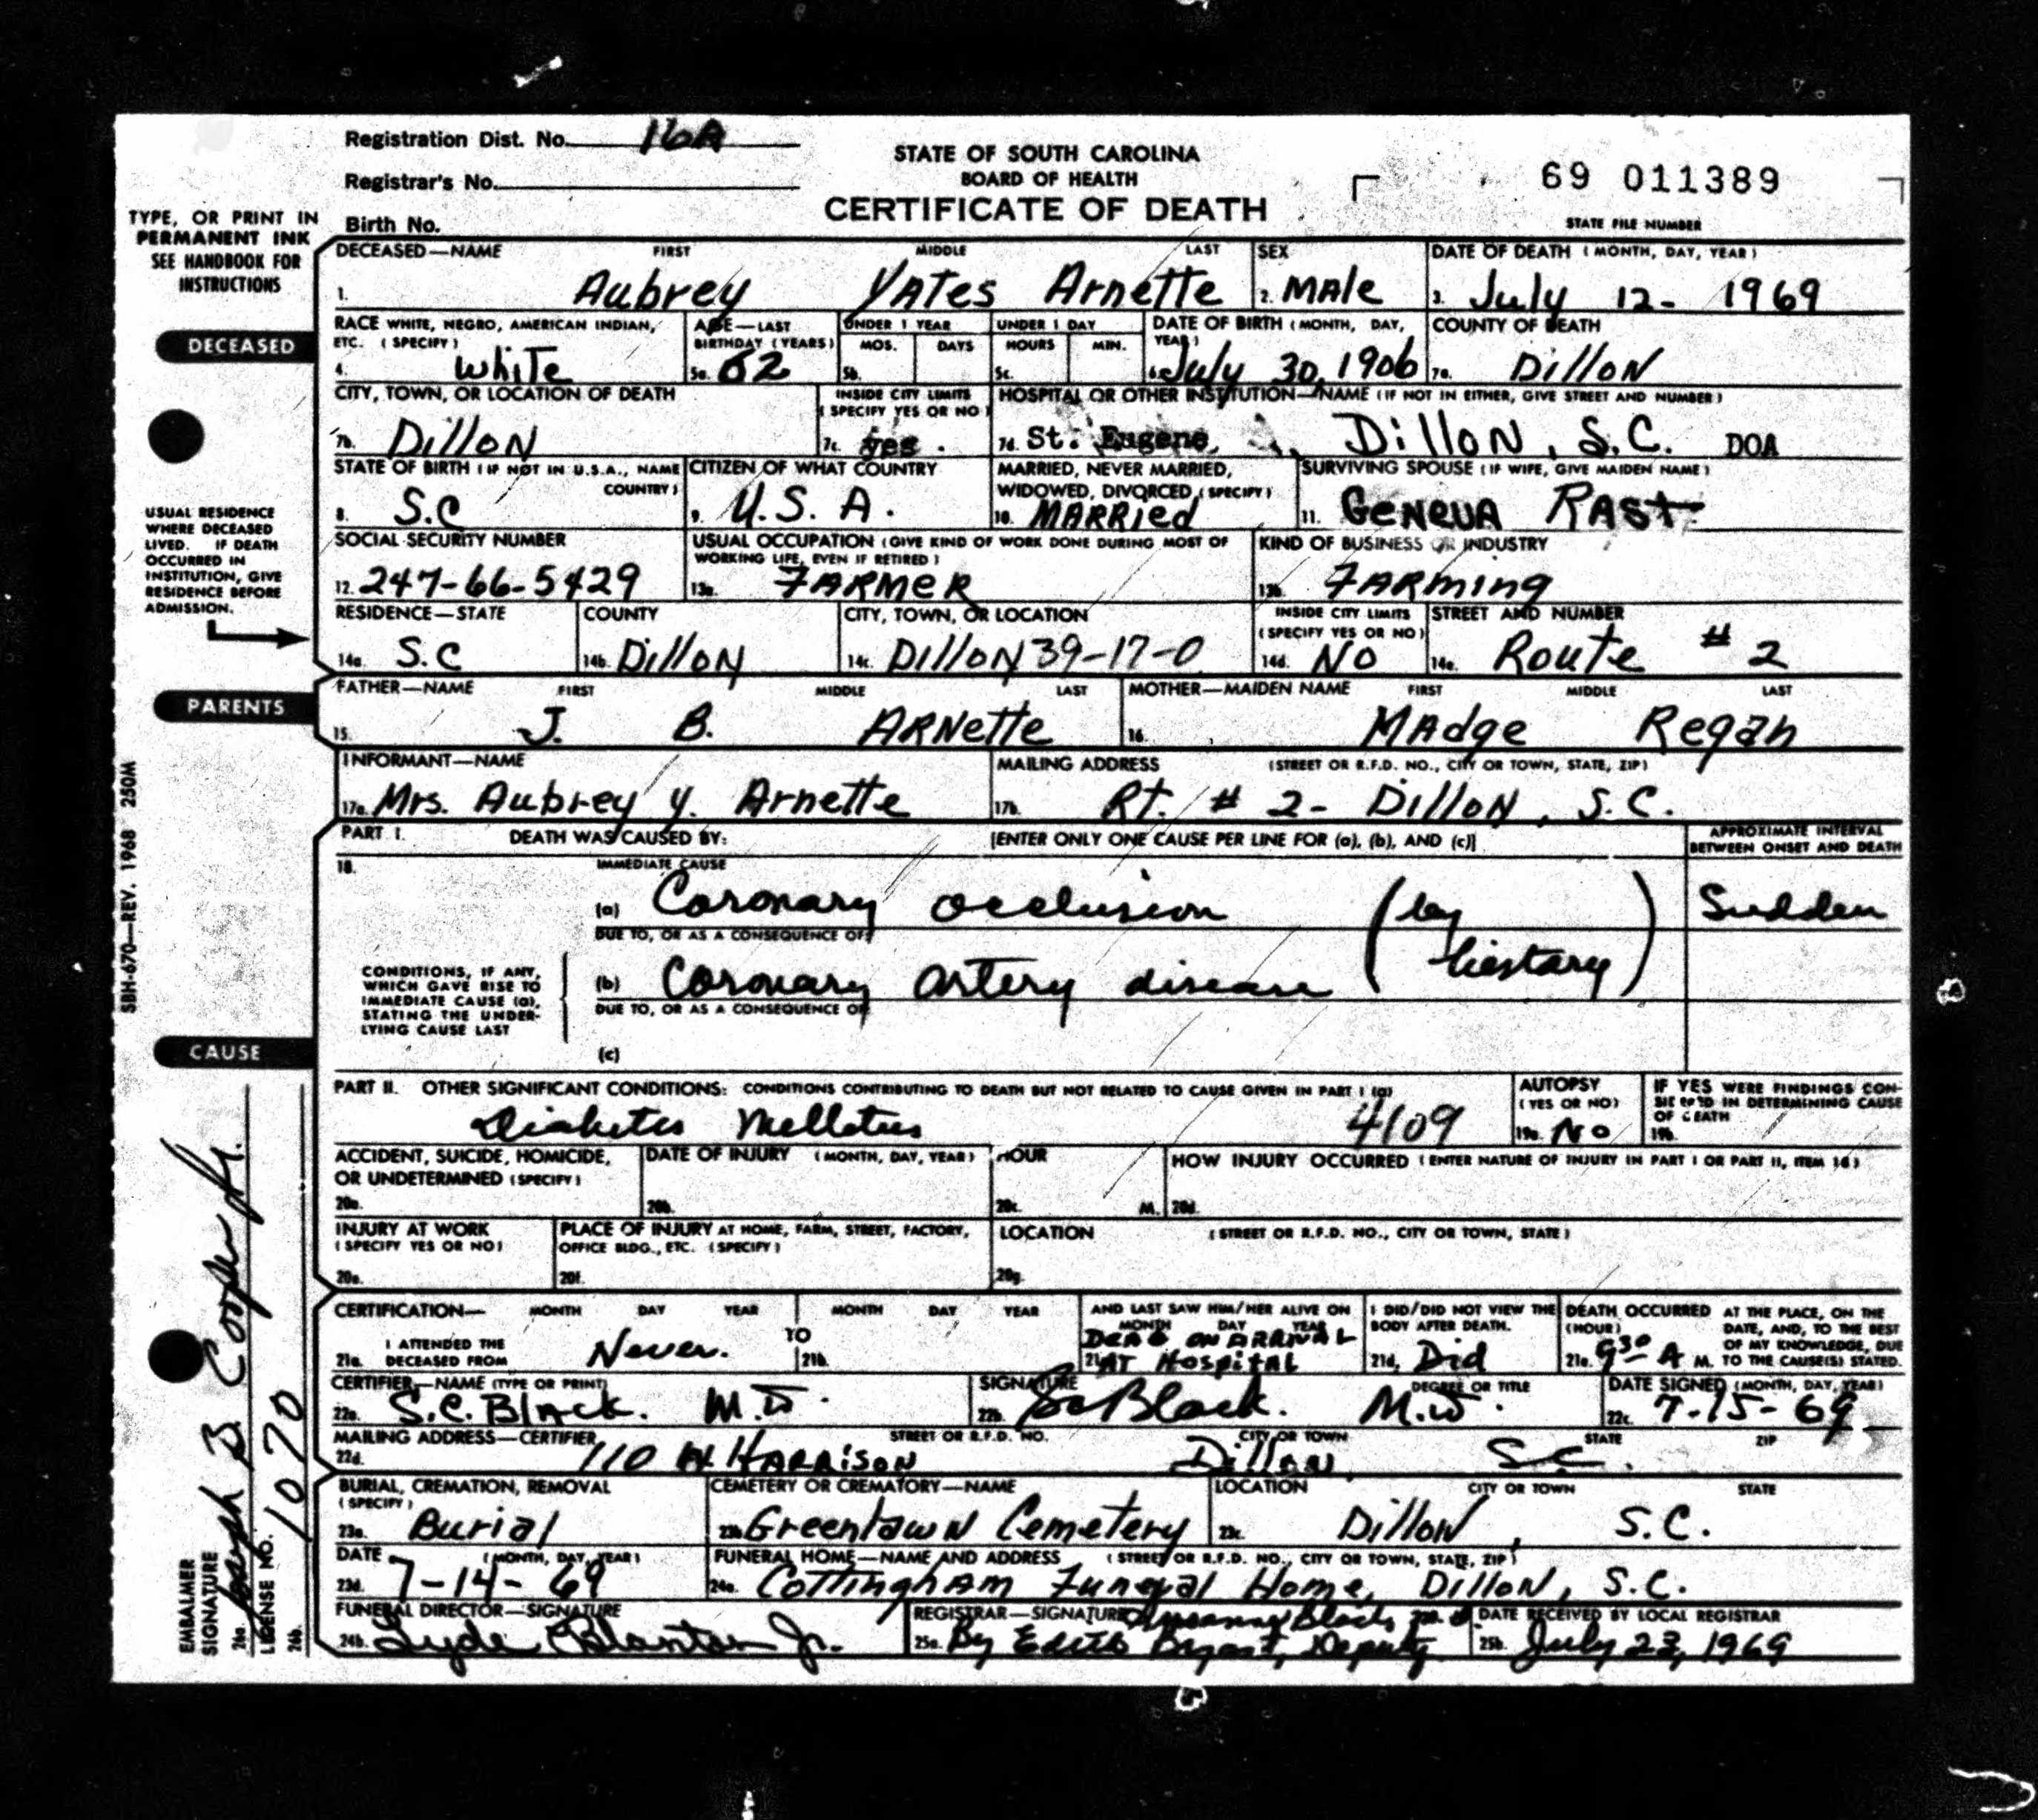 Registration Dist. No. 16A
Registrar's No.
Birth No.
STATE OF SOUTH CAROLINA
BOARD OF HEALTH
CERTIFICATE OF DEATH
69 011389
STATE FILE NUMBER
TYPE, OR PRINT IN
PERMANENT INK
SEE HANDBOOK FOR
INSTRUCTIONS
DECEASED
DECEASED—NAME FIRST MIDDLE LAST SEX DATE OF DEATH (MONTH, DAY, YEAR)
1. Aubrey Yates Arnette 2. Male 3. July 12- 1969
RACE WHITE, NEGRO, AMERICAN INDIAN, AGE—LAST UNDER 1 YEAR UNDER 1 DAY DATE OF BIRTH (MONTH, DAY, COUNTY OF DEATH
ETC. (SPECIFY) BIRTHDAY (YEARS) MOS. DAYS HOURS MIN. YEAR)
4. White 5a. 62 5b. 5c. 6. July 30, 1906 7a. Dillon
CITY, TOWN, OR LOCATION OF DEATH INSIDE CITY LIMITS HOSPITAL OR OTHER INSTITUTION—NAME (IF NOT IN EITHER, GIVE STREET AND NUMBER)
(SPECIFY YES OR NO)
7b. Dillon 7c. yes. 7d. St. Eugene, Dillon, S.C. DOA
STATE OF BIRTH (IF NOT IN U.S.A., NAME CITIZEN OF WHAT COUNTRY MARRIED, NEVER MARRIED, SURVIVING SPOUSE (IF WIFE, GIVE MAIDEN NAME)
COUNTRY) WIDOWED, DIVORCED (SPECIFY)
8. S.C 9. U.S.A. 10. Married 11. Geneva Rast
USUAL RESIDENCE
WHERE DECEASED
LIVED. IF DEATH
OCCURRED IN
INSTITUTION, GIVE
RESIDENCE BEFORE
ADMISSION.
SOCIAL SECURITY NUMBER USUAL OCCUPATION (GIVE KIND OF WORK DONE DURING MOST OF KIND OF BUSINESS OR INDUSTRY
WORKING LIFE, EVEN IF RETIRED)
12. 247-66-5429 13a. Farmer 13b. Farming
RESIDENCE—STATE COUNTY CITY, TOWN, OR LOCATION INSIDE CITY LIMITS STREET AND NUMBER
(SPECIFY YES OR NO)
14a. S.C 14b. Dillon 14c. Dillon 39-17-0 14d. No 14e. Route # 2
PARENTS
FATHER—NAME FIRST MIDDLE LAST MOTHER—MAIDEN NAME FIRST MIDDLE LAST
15. J. B. Arnette 16. Madge Regan
INFORMANT—NAME MAILING ADDRESS (STREET OR R.F.D. NO., CITY OR TOWN, STATE, ZIP)
17a. Mrs. Aubrey Y. Arnette 17b. Rt. # 2- Dillon, S.C.
SBH-670—REV. 1968 250M
CAUSE
PART I. DEATH WAS CAUSED BY: [ENTER ONLY ONE CAUSE PER LINE FOR (a), (b), AND (c)] APPROXIMATE INTERVAL
BETWEEN ONSET AND DEATH
18. IMMEDIATE CAUSE
(a) Coronary occlusion (by Sudden
DUE TO, OR AS A CONSEQUENCE OF:
CONDITIONS, IF ANY,
WHICH GAVE RISE TO
IMMEDIATE CAUSE (a),
STATING THE UNDER-
LYING CAUSE LAST
(b) Coronary artery disease history)
DUE TO, OR AS A CONSEQUENCE OF
(c)
PART II. OTHER SIGNIFICANT CONDITIONS: CONDITIONS CONTRIBUTING TO DEATH BUT NOT RELATED TO CAUSE GIVEN IN PART I (a) AUTOPSY IF YES WERE FINDINGS CON-
(YES OR NO) SIDERED IN DETERMINING CAUSE
OF DEATH
Diabetes Mellitus 4109 19a. No 19b.
ACCIDENT, SUICIDE, HOMICIDE, DATE OF INJURY (MONTH, DAY, YEAR) HOUR HOW INJURY OCCURRED (ENTER NATURE OF INJURY IN PART I OR PART II, ITEM 18)
OR UNDETERMINED (SPECIFY)
20a. 20b. 20c. M. 20d.
INJURY AT WORK PLACE OF INJURY AT HOME, FARM, STREET, FACTORY, LOCATION (STREET OR R.F.D. NO., CITY OR TOWN, STATE)
(SPECIFY YES OR NO) OFFICE BLDG., ETC. (SPECIFY)
20e. 20f. 20g.
CERTIFICATION— MONTH DAY YEAR MONTH DAY YEAR AND LAST SAW HIM/HER ALIVE ON I DID/DID NOT VIEW THE DEATH OCCURRED AT THE PLACE, ON THE
MONTH DAY YEAR BODY AFTER DEATH. (HOUR) DATE, AND, TO THE BEST
I ATTENDED THE TO Dead on Arrival OF MY KNOWLEDGE, DUE
21a. DECEASED FROM Never. 21b. 21c. At Hospital 21d. Did 21e. 9 30 A M. TO THE CAUSE(S) STATED.
CERTIFIER—NAME (TYPE OR PRINT) SIGNATURE DEGREE OR TITLE DATE SIGNED (MONTH, DAY, YEAR)
22a. S.C. Black. M.D. 22b. SC Black. M.D. 22c. 7-15-69
MAILING ADDRESS—CERTIFIER STREET OR R.F.D. NO. CITY OR TOWN STATE ZIP
22d. 110 W Harrison Dillon, S.C.
BURIAL, CREMATION, REMOVAL CEMETERY OR CREMATORY—NAME LOCATION CITY OR TOWN STATE
(SPECIFY)
23a. Burial 23b. Greenlawn Cemetery 23c. Dillon, S.C.
DATE (MONTH, DAY, YEAR) FUNERAL HOME—NAME AND ADDRESS (STREET OR R.F.D. NO., CITY OR TOWN, STATE, ZIP)
23d. 7-14-69 24a. Cottingham Funeral Home, Dillon, S.C.
FUNERAL DIRECTOR—SIGNATURE REGISTRAR—SIGNATURE Black, DATE RECEIVED BY LOCAL REGISTRAR
24b. Lyde Blanton Jr. 25a. By Edith Bryant, Deputy 25b. July 23, 1969
EMBALMER
SIGNATURE
26a. Joseph B. Cooper Jr.
LICENSE NO.
26b. 1070